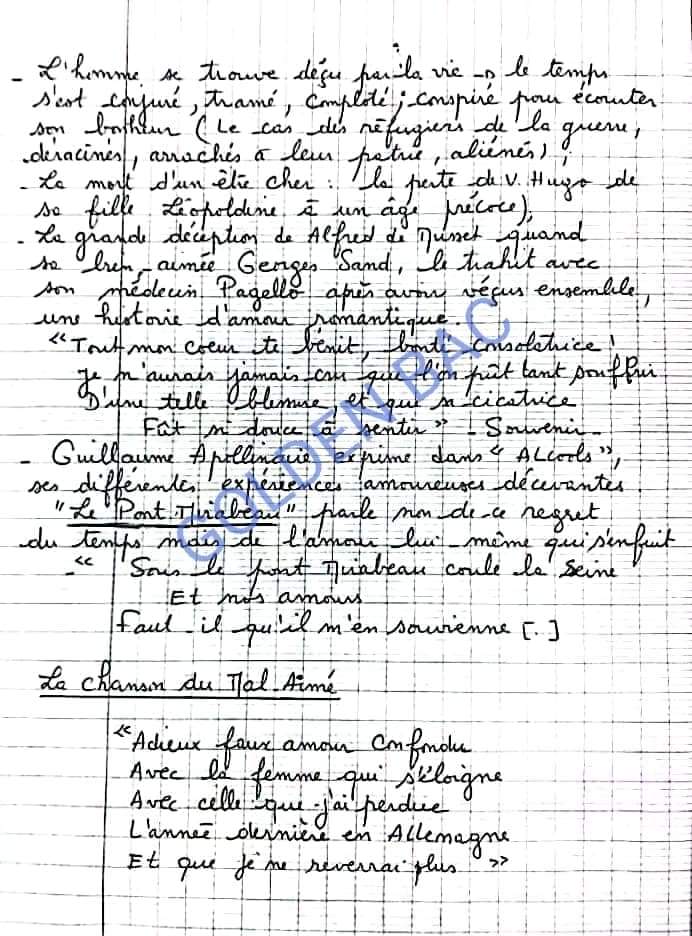 - L'homme se trouve déçu par la vie → le temps
s'est conjuré, tramé, comploté; conspiré pour écourter
son bonheur (Le cas des réfugiers de la guerre,
déracinés, arrachés à leur patrie, aliénés);
- La mort d'un être cher : la perte de V. Hugo de
sa fille Léopoldine à un âge précoce),
- La grande déception de Alfred de Musset quand
sa bien-aimée Georges Sand, le trahit avec
son médecin Pagello après avoir vécus ensemble,
une histoire d'amour romantique.
"Tout mon coeur te bénit, bonté consolatrice!
Je n'aurais jamais cru que l'on pût tant souffrir
D'une telle blessure, et que sa cicatrice
Fût si douce à sentir" - Souvenir -
- Guillaume Apollinaire exprime dans "ALcools",
ses différentes expériences amoureuses décevantes.
"Le Pont Mirabeau" parle non de ce regret
du temps mais de l'amour lui-même qui s'enfuit
- " Sous le pont Mirabeau coule la Seine
Et nos amours
Faut-il qu'il m'en souvienne [..]
La chanson du Mal-Aimé
"Adieux faux amour confondu
Avec la femme qui s'éloigne
Avec celle que j'ai perdue
L'année dernière en Allemagne
Et que je ne reverrai plus "
GOLDEN BAC